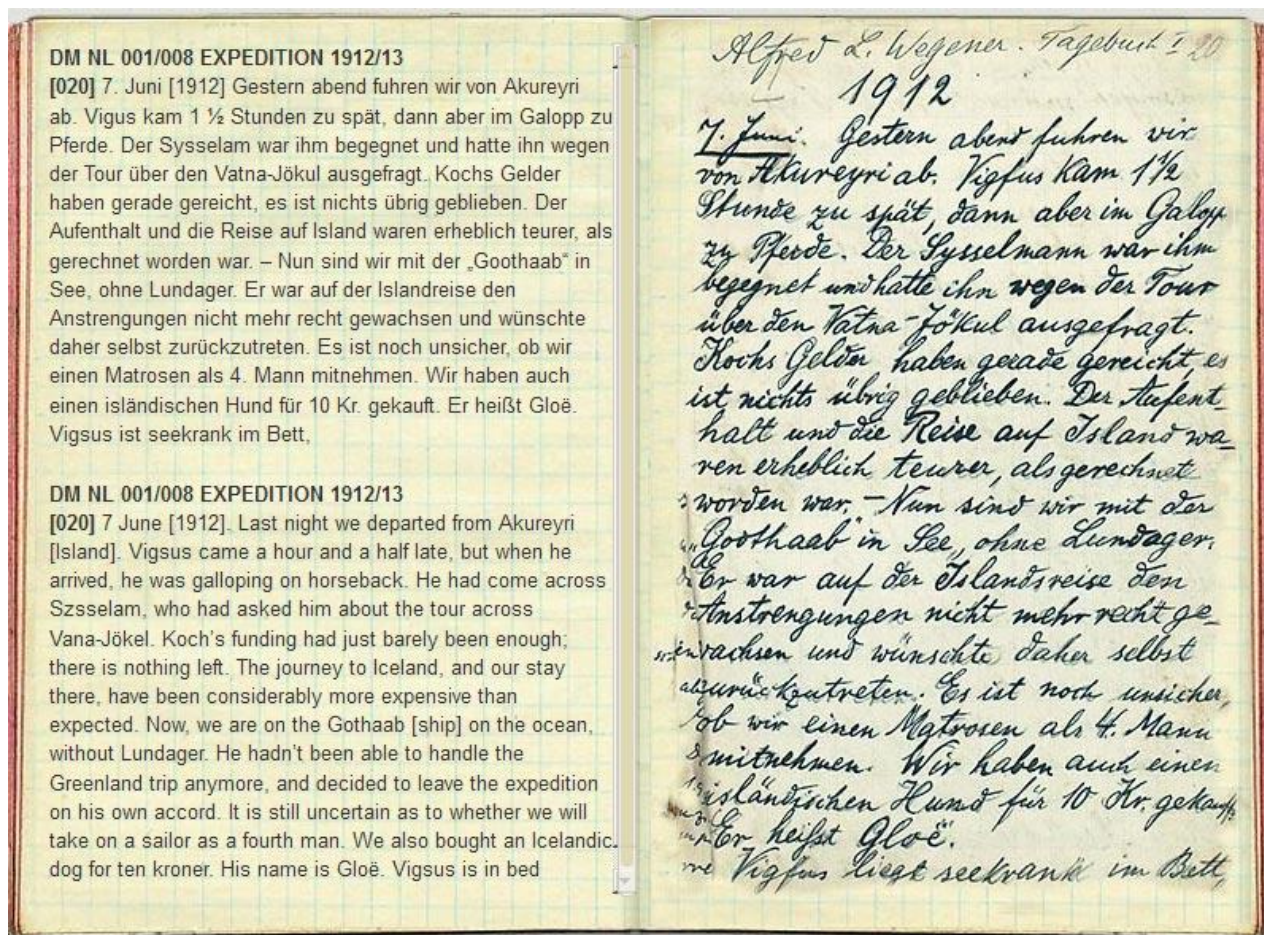 DM NL 001/008 EXPEDITION 1912/13
[020] 7. Juni [1912] Gestern abend fuhren wir von Akureyri
ab. Vigus kam 1 ½ Stunden zu spät, dann aber im Galopp zu
Pferde. Der Sysselam war ihm begegnet und hatte ihn wegen
der Tour über den Vatna-Jökul ausgefragt. Kochs Gelder
haben gerade gereicht, es ist nichts übrig geblieben. Der
Aufenthalt und die Reise auf Island waren erheblich teurer, als
gerechnet worden war. – Nun sind wir mit der „Goothaab“ in
See, ohne Lundager. Er war auf der Islandreise den
Anstrengungen nicht mehr recht gewachsen und wünschte
daher selbst zurückzutreten. Es ist noch unsicher, ob wir
einen Matrosen als 4. Mann mitnehmen. Wir haben auch
einen isländischen Hund für 10 Kr. gekauft. Er heißt Gloë.
Vigsus ist seekrank im Bett,
DM NL 001/008 EXPEDITION 1912/13
[020] 7 June [1912]. Last night we departed from Akureyri
[Island]. Vigsus came a hour and a half late, but when he
arrived, he was galloping on horseback. He had come across
Szsselam, who had asked him about the tour across
Vana-Jökel. Koch’s funding had just barely been enough;
there is nothing left. The journey to Iceland, and our stay
there, have been considerably more expensive than
expected. Now, we are on the Gothaab [ship] on the ocean,
without Lundager. He hadn’t been able to handle the
Greenland trip anymore, and decided to leave the expedition
on his own accord. It is still uncertain as to whether we will
take on a sailor as a fourth man. We also bought an Icelandic
dog for ten kroner. His name is Gloë. Vigsus is in bed
Alfred L. Wegener. Tagebuch I 20
1912
7. Juni. Gestern abend fuhren wir
von Akureyri ab. Vigfus kam 1 1/2
Stunde zu spät, dann aber im Galopp
zu Pferde. Der Sysselmann war ihm
begegnet und hatte ihn wegen der Tour
über den Vatna-Jökul ausgefragt.
Kochs Gelder haben gerade gereicht, es
ist nichts übrig geblieben. Der Aufent-
halt und die Reise auf Island wa-
ren erheblich teurer, als gerechnet
worden war. – Nun sind wir mit der
„Godthaab“ in See, ohne Lundager.
Er war auf der Islandsreise den
Anstrengungen nicht mehr recht ge-
wachsen und wünschte daher selbst
zurückzutreten. Es ist noch unsicher,
ob wir einen Matrosen als 4. Mann
mitnehmen. Wir haben auch einen
isländischen Hund für 10 Kr. gekauft.
Er heißt Gloë.
Vigfus liegt seekrank im Bett,